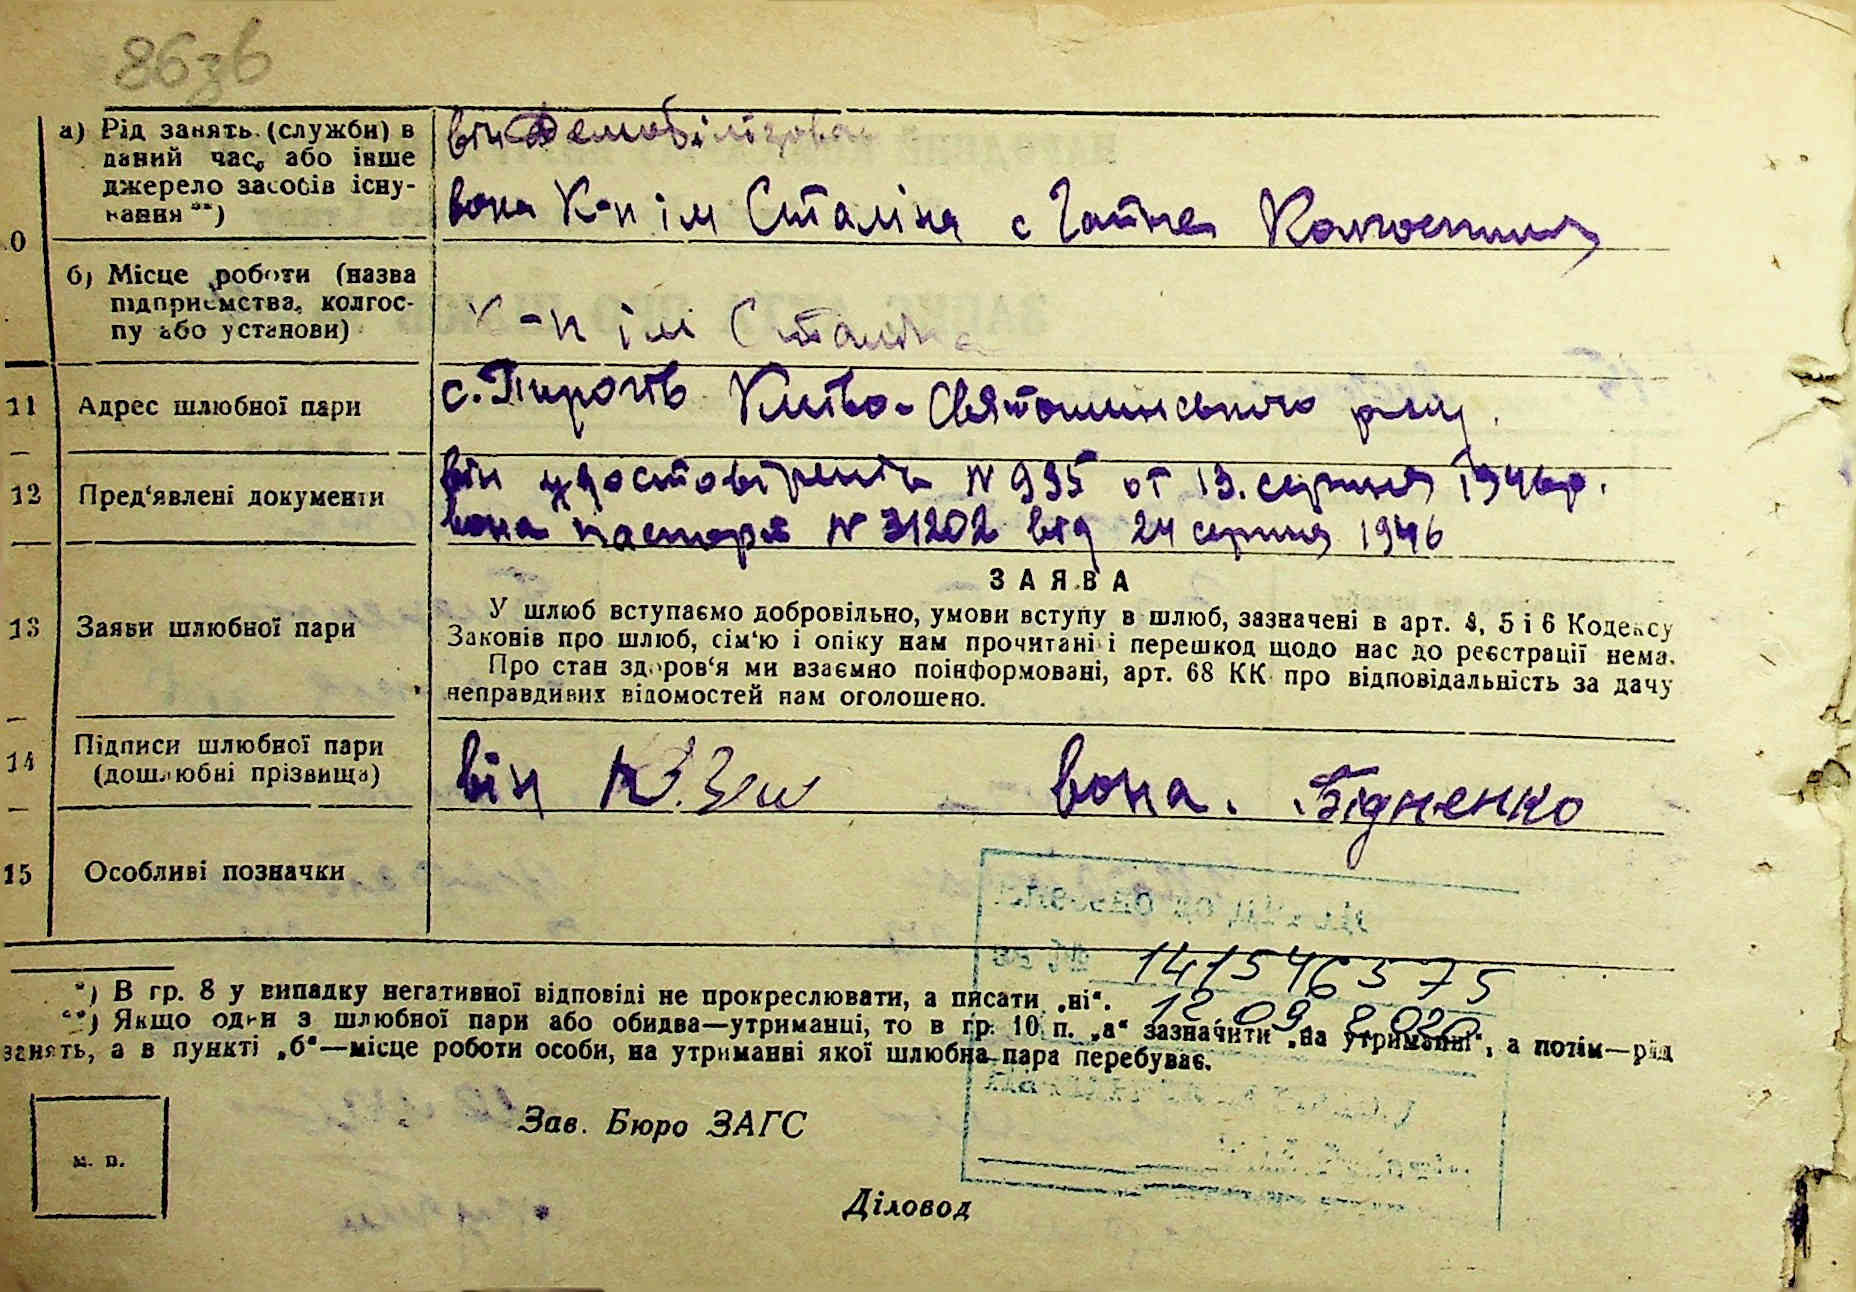 86зв
а) Рід занять (служби) в
даний час, або інше
джерело засобів існу-
вання **)
він Демобілізован
вона К-п ім Сталіна с Гатне Колгоспниця
10
б) Місце роботи (назва
підприємства, колгос-
пу або установи)
К-п ім Сталіна
11 Адрес шлюбної пари
с. Пирогів Києво-Святошинського
12 Пред‘явлені документи
він удостовірення N 995 от 13. серпня 1946р.
вона паспорт N 31202 від 24 серпня 1946
ЗАЯВА
13 Заяви шлюбної пари
У шлюб вступаємо добровільно, умови вступу в шлюб, зазначені в арт. 4, 5 і 6 Кодексу
Законів про шлюб, сім‘ю і опіку нам прочитані і перешкод щодо нас до реєстрації нема.
Про стан здоров‘я ми взаємно поінформовані, арт. 68 КК про відповідальність за дачу
неправдивих відомостей нам оголошено.
14 Підписи шлюбної пари
(дошлюбні прізвища)
він вона. Бідненко
15 Особливі позначки
1415 463 75
12 09 2020
*) В гр. 8 у випадку негативної відповіді не прокреслювати, а писати „ні“.
**) Якщо один з шлюбної пари або обидва—утриманці, то в гр. 10 п. „а“ зазначити „на утриманні“, а потім—рід
занять, а в пункті „б“—місце роботи особи, на утриманні якої шлюбна пара перебуває.
Зав. Бюро ЗАГС
м. п.
Діловод